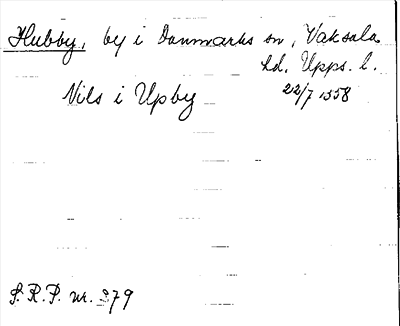 Hubby, by i Danmarks sn, Vaksala
hd. Upps. l.
Nils i Upby 22/7 1358
S.R.P. nr. 379